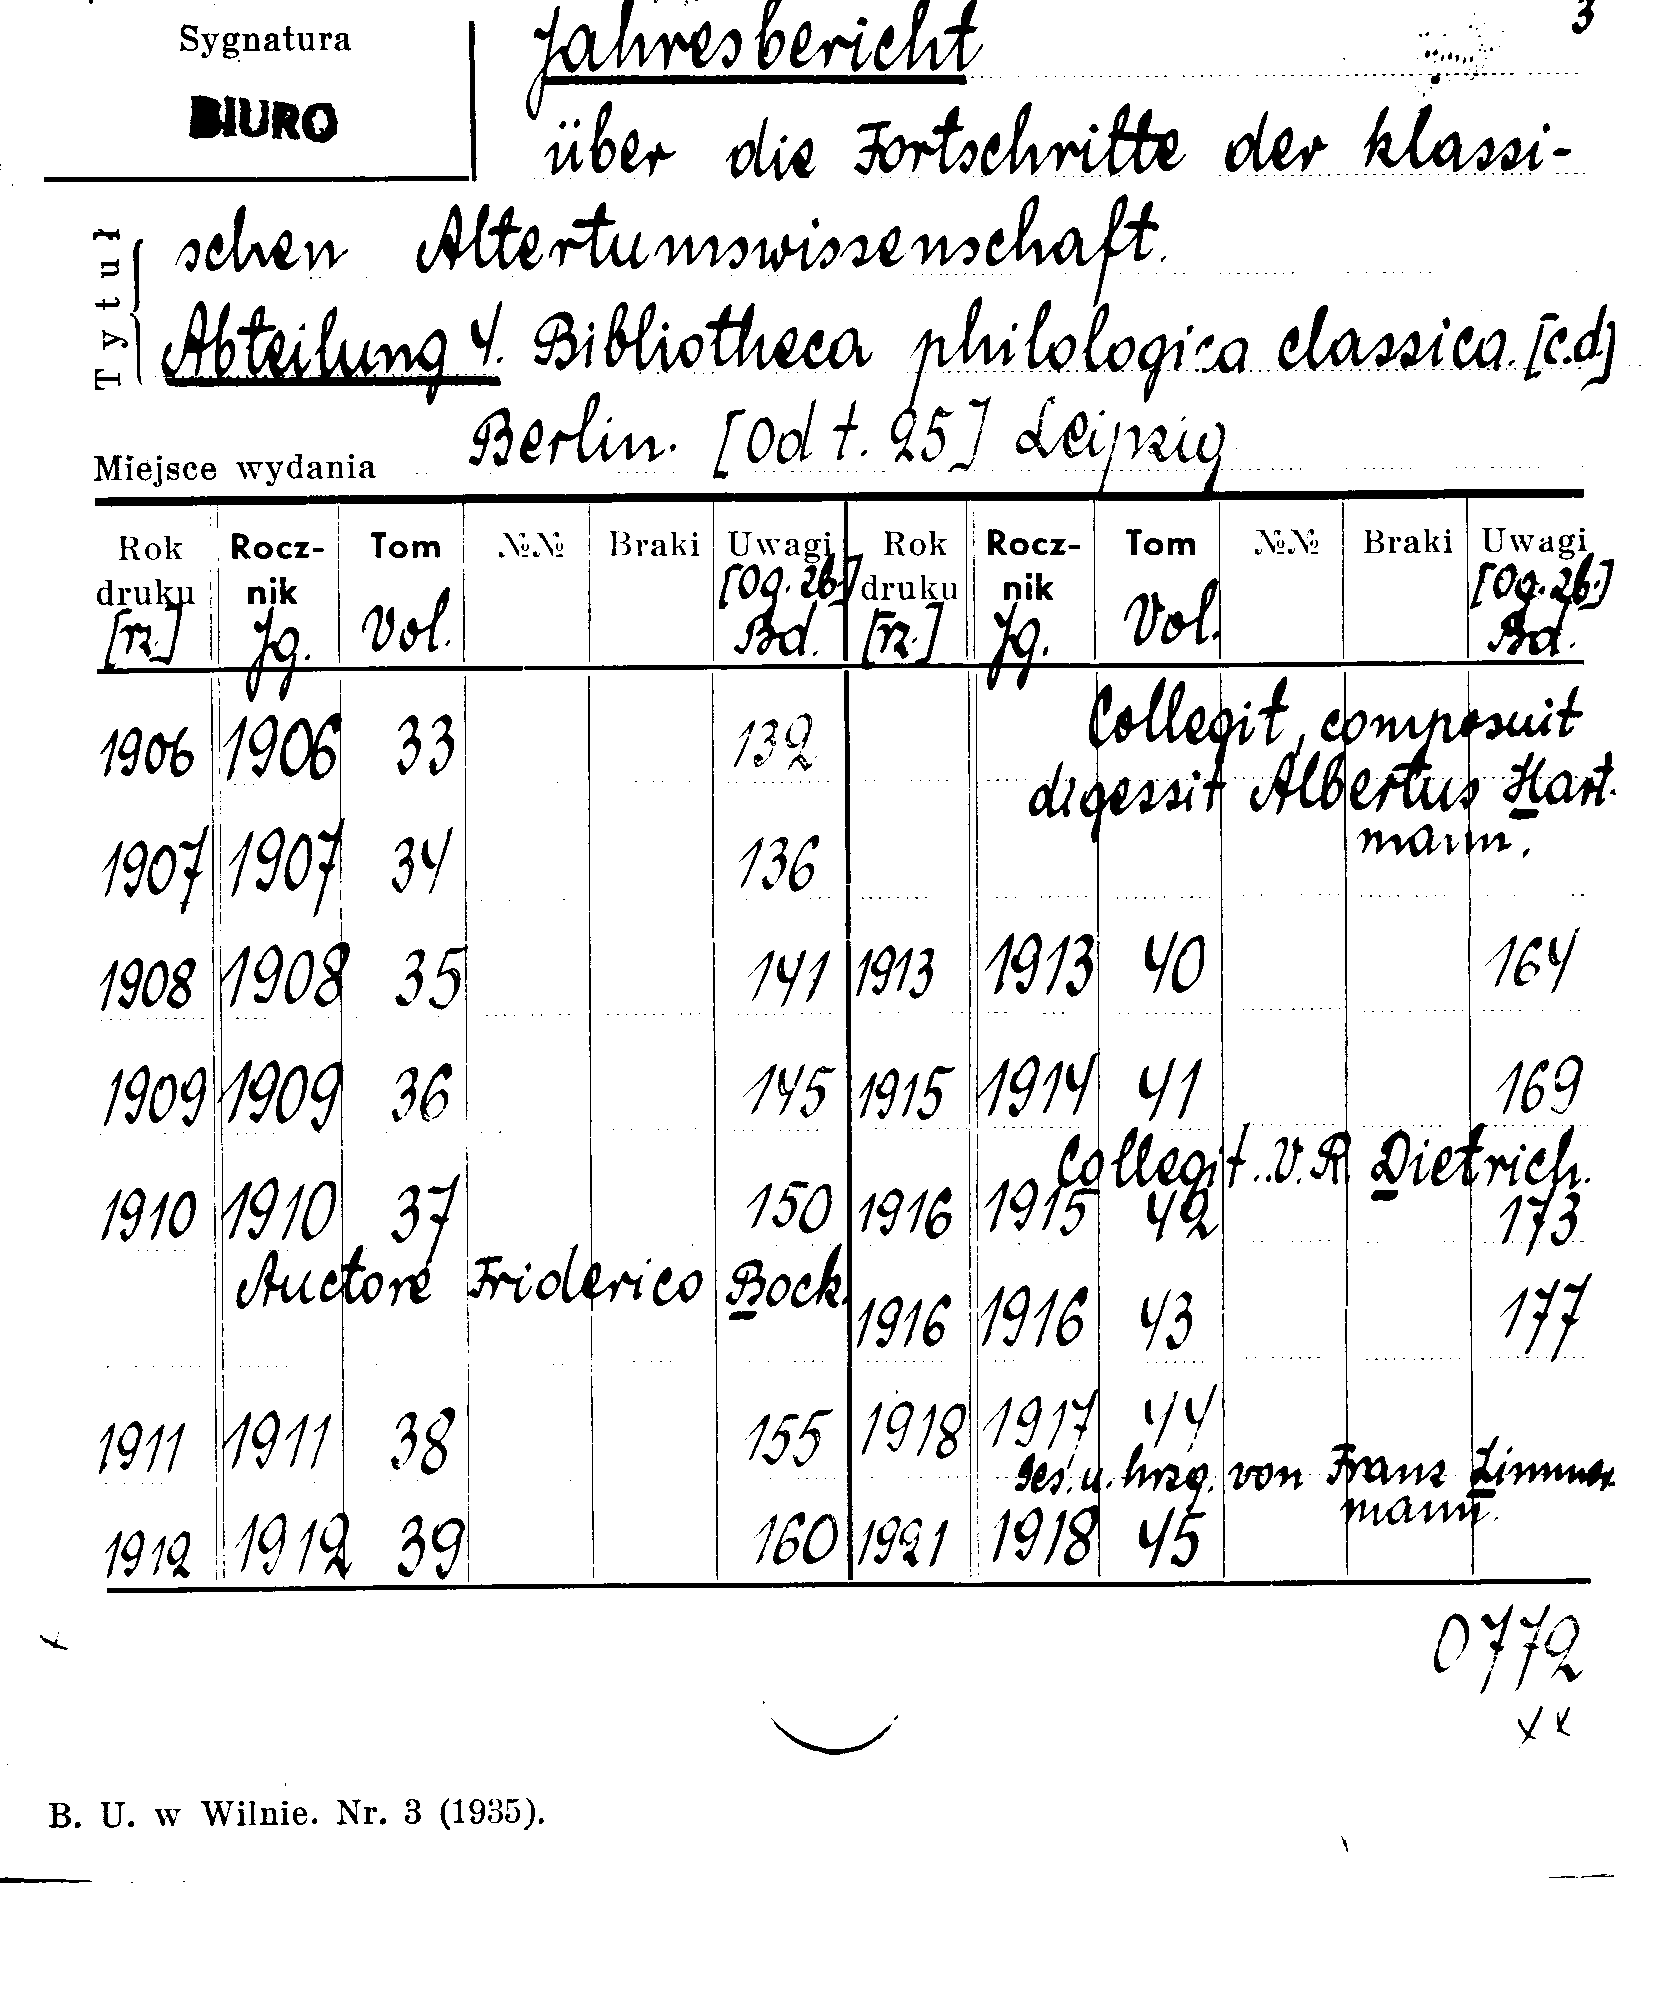 3
Sygnatura
BIURO
Jahresbericht
über die Fortschritte der klassi-
schen Altertumswissenschaft.
Tytuł
Abteilung 4. Bibliotheca philologica classica. [c.d]
Miejsce wydania Berlin. [Od t. 25] Leipzig
Rok druku [rz.] Rocz-nik Jg. Tom Vol. №№ Braki Uwagi [Og. zb.] Bd. Rok druku [rz.] Rocz-nik Jg. Tom Vol. №№ Braki Uwagi [Og. zb.] Bd.
1906 1906 33 132
1907 1907 34 136
1908 1908 35 141
1909 1909 36 145
1910 1910 37 150
Auctore Friderico Bock.
1911 1911 38 155
1912 1912 39 160
Collegit, composuit
digessit Albertus Hart-
mann.
1913 1913 40 164
1915 1914 41 169
Collegit.. V. R. Dietrich.
1916 1915 42 173
1916 1916 43 177
1918 1917 44
Ges. u. hrzg. von Franz Zimmer
mann.
1921 1918 45
0772
x x x
B. U. w Wilnie. Nr. 3 (1935).